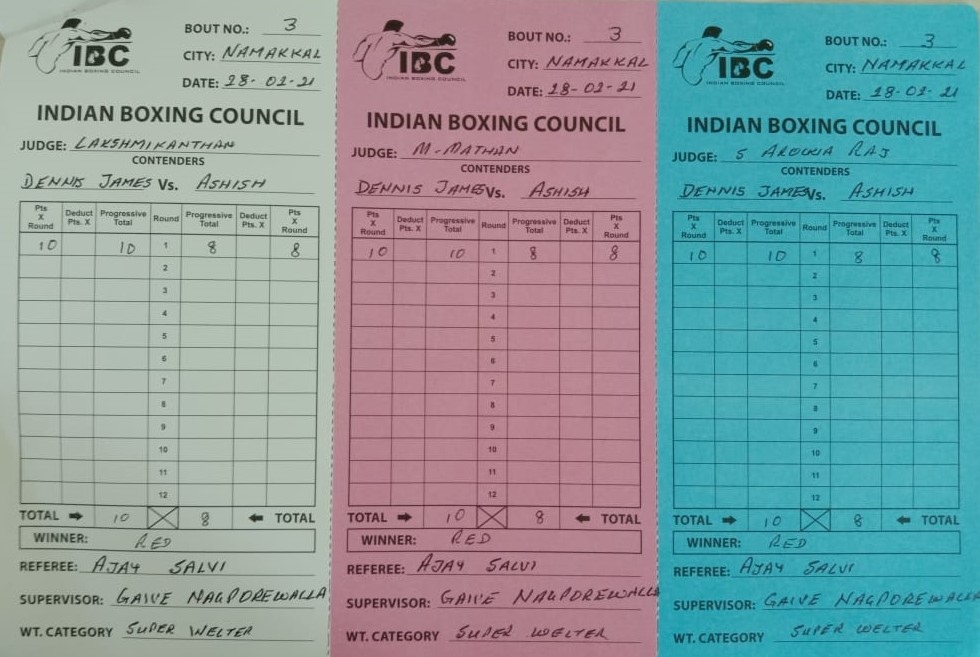 IBC
INDIAN BOXING COUNCIL
BOUT NO.: 3
CITY: NAMAKKAL
DATE: 28-02-21
INDIAN BOXING COUNCIL
JUDGE: LAKSHMIKANTHAN
CONTENDERS
DENNIS JAMES Vs. ASHISH
Pts X Round Deduct Pts. X Progressive Total Round Progressive Total Deduct Pts. X Pts X Round
10 10 1 8 8
2
3
4
5
6
7
8
9
10
11
12
TOTAL ➡ 10 8 ⬅ TOTAL
WINNER: RED
REFEREE: AJAY SALVI
SUPERVISOR: GAIVE NAGPOREWALLA
WT. CATEGORY SUPER WELTER
IBC
INDIAN BOXING COUNCIL
BOUT NO.: 3
CITY: NAMAKKAL
DATE: 28-02-21
INDIAN BOXING COUNCIL
JUDGE: M-MATHAN
CONTENDERS
DENNIS JAMES Vs. ASHISH
Pts X Round Deduct Pts. X Progressive Total Round Progressive Total Deduct Pts. X Pts X Round
10 10 1 8 8
2
3
4
5
6
7
8
9
10
11
12
TOTAL ➡ 10 8 ⬅ TOTAL
WINNER: RED
REFEREE: AJAY SALVI
SUPERVISOR: GAIVE NAGPOREWALLA
WT. CATEGORY SUPER WELTER
IBC
INDIAN BOXING COUNCIL
BOUT NO.: 3
CITY: NAMAKKAL
DATE: 28-02-21
INDIAN BOXING COUNCIL
JUDGE: S AROKIA RAJ
CONTENDERS
DENNIS JAMES Vs. ASHISH
Pts X Round Deduct Pts. X Progressive Total Round Progressive Total Deduct Pts. X Pts X Round
10 10 1 8 8
2
3
4
5
6
7
8
9
10
11
12
TOTAL ➡ 10 8 ⬅ TOTAL
WINNER: RED
REFEREE: AJAY SALVI
SUPERVISOR: GAIVE NAGPOREWALLA
WT. CATEGORY SUPER WELTER